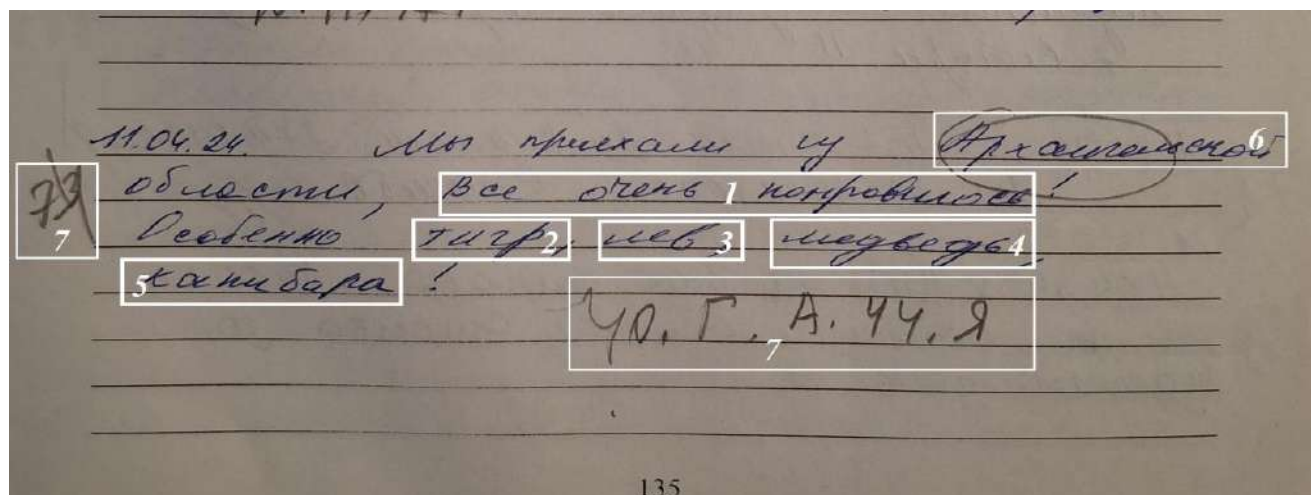 11.04.24. Мы приехали из Архангельской 6
области, все очень 1 понравилось!
7 Особенно тигр, 2 лев, 3 медведь, 4
5 капибара!
40. Г. А. 44. Я
7
135